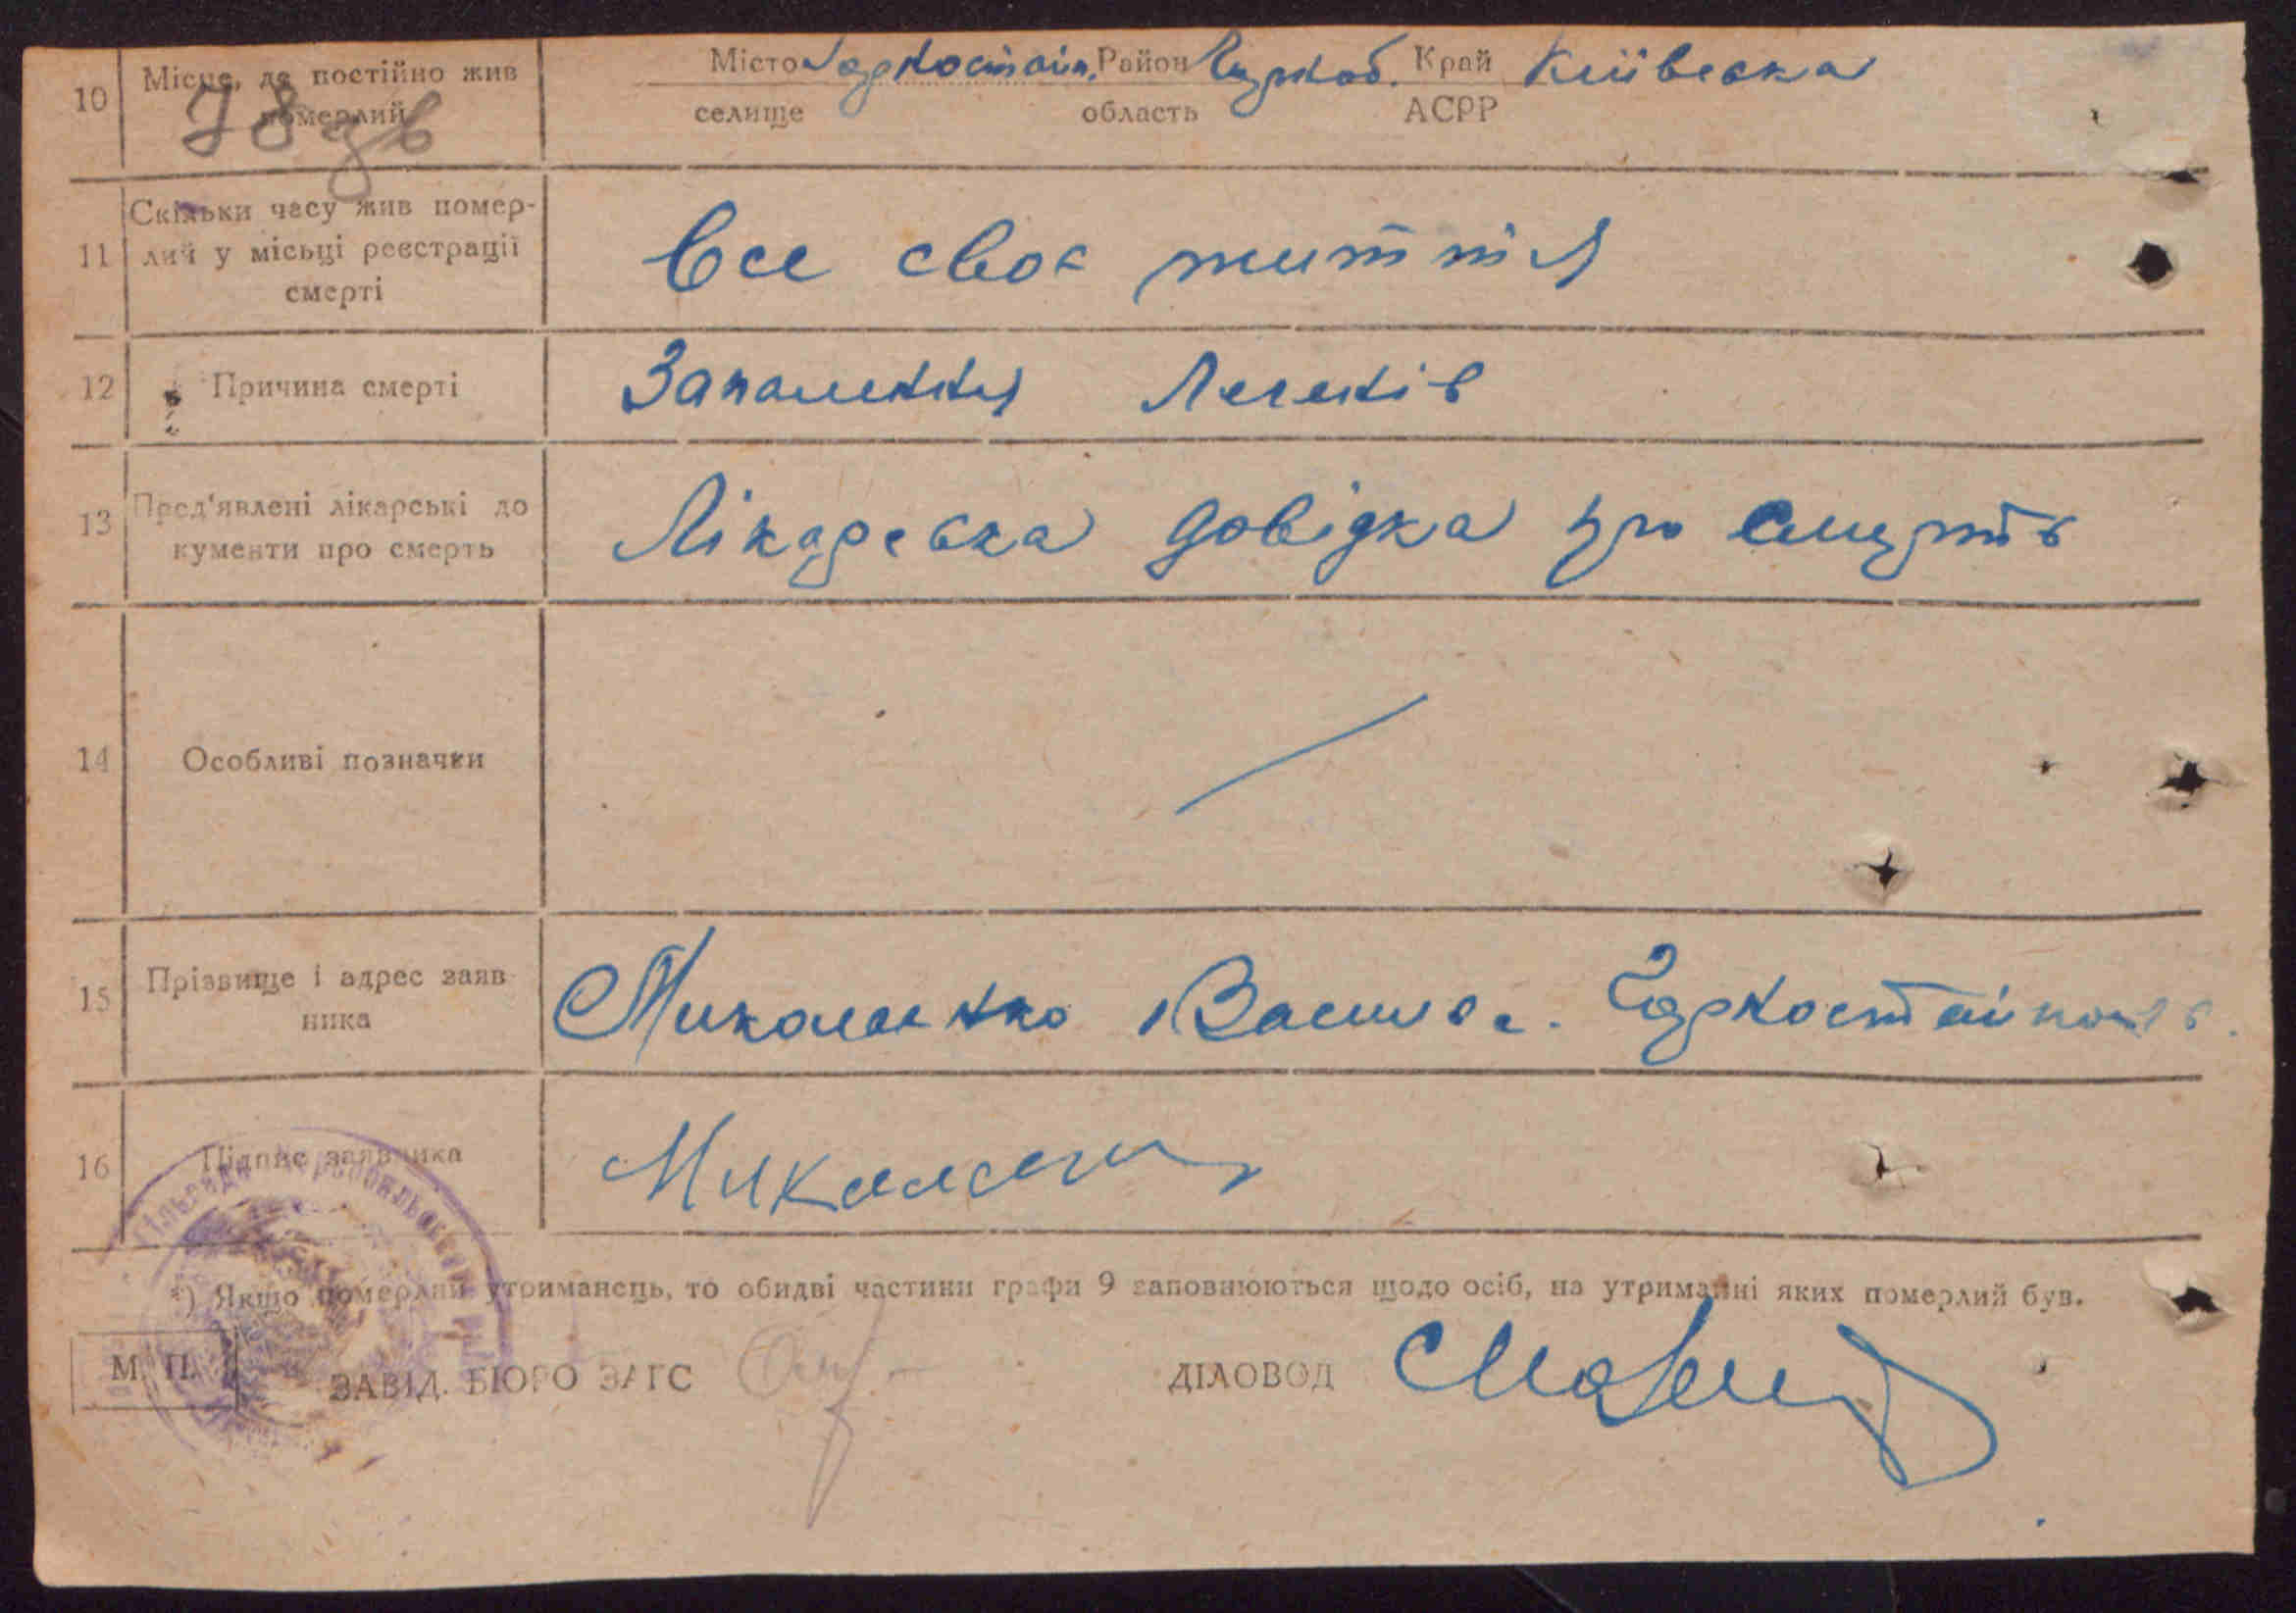 10 Місце, де постійно жив Місто Горностайп. Район Чорноб. Край Київська
померлий селище область АСРР
78зв
Скільки часу жив помер-
11 лий у місьці реєстрації Все своє життя
смерті
12 Причина смерті Запалення Легенів
13 Пред'явлені лікарські до
кументи про смерть Лікарська довідка про смерть
14 Особливі позначки
15 Прізвище і адрес заяв- Миколаенко Васил
ника
16 Підпис заявника
*) Якщо померлий утриманець, то обидві частини графи 9 заповнюються щодо осіб, на утриманні яких померлий був.
М. П. ЗАВІД. БЮРО ЗАГС ДІЛОВОД